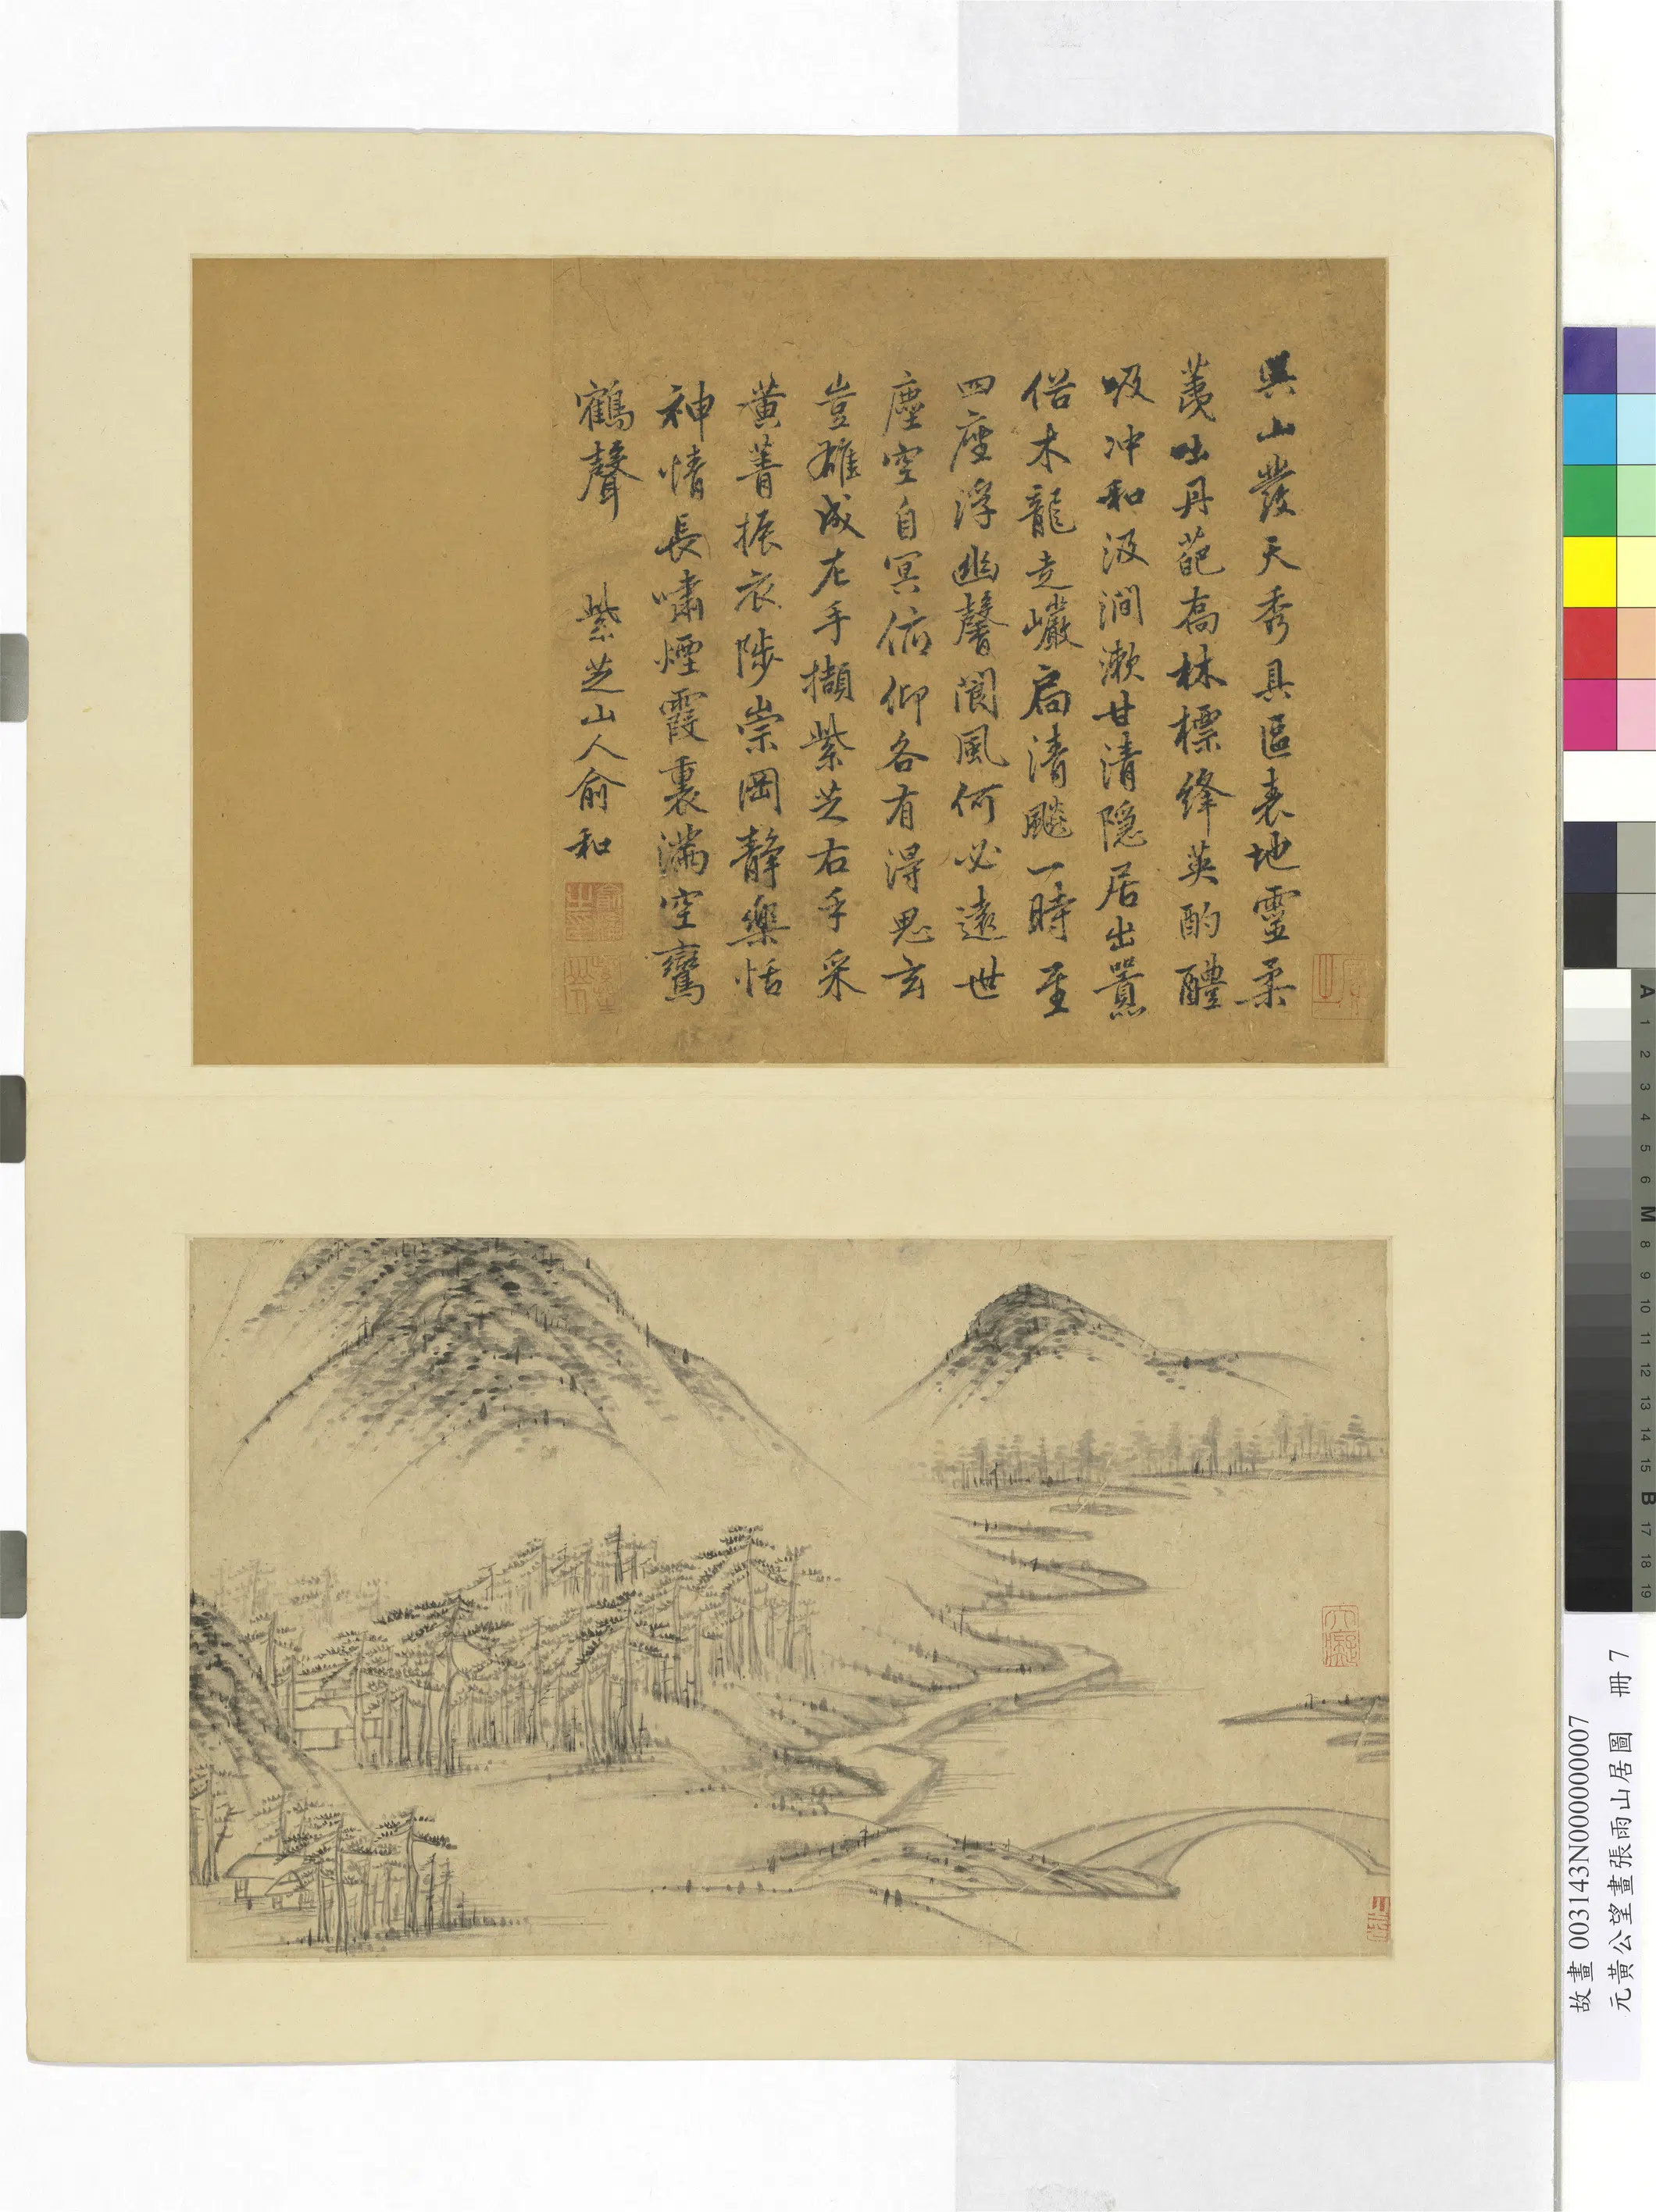 吳山發天秀具區表地靈柔
荑吐丹葩高林標絳英酌醴
吸冲和汲澗漱甘清隱居出嚣
俗木龍走巖扃清飈一時至
四座浮幽馨閬風何必遠世
塵空自冥俯仰各有得思玄
豈難成左手擷紫芝右手采
黄菁振衣陟崇岡静樂恬
神情長嘯煙霞裏滿空鸞
鶴聲
紫芝山人俞和
大癡
A 1 2 3 4 5 6 M 8 9 10 11 12 13 14 15 B 17 18 19
故畫 003143N000000007
元黃公望畫張雨山居圖 冊 7